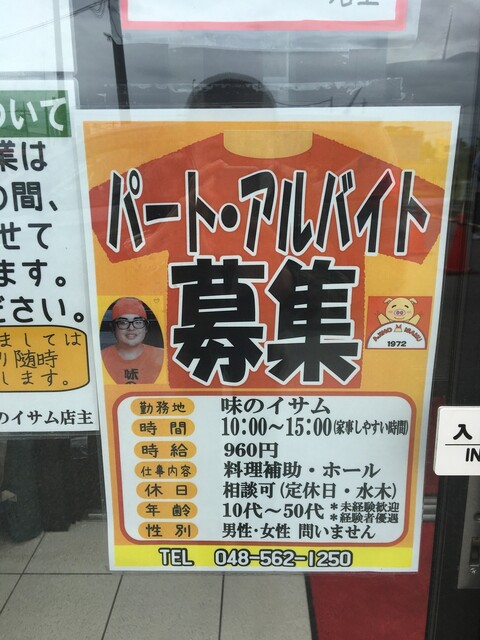 ついて
業は
の間、
せて
ます。
ださい。
ましては
り随時
します。
のイサム店主
パート・アルバイト
募集
味の
AJINO ISAMU
1972
勤務地 味のイサム
時間 10:00～15:00(家事しやすい時間)
時給 960円
仕事内容 料理補助・ホール
休日 相談可(定休日・水木)
年齢 10代～50代 *未経験歓迎 *経験者優遇
性別 男性・女性 問いません
TEL 048-562-1250
入
IN